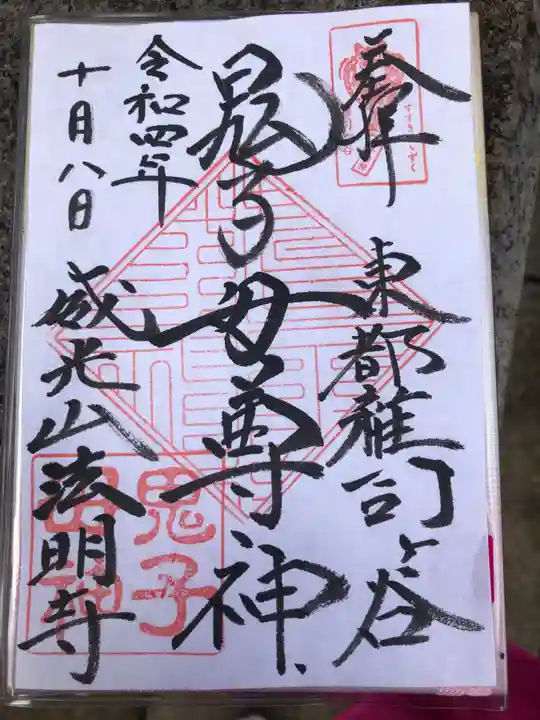 奉拝
東都雑司ヶ谷
鬼子母尊神
令和四年
十月八日
威光山法明寺
すすきみみずく
鬼子
母神